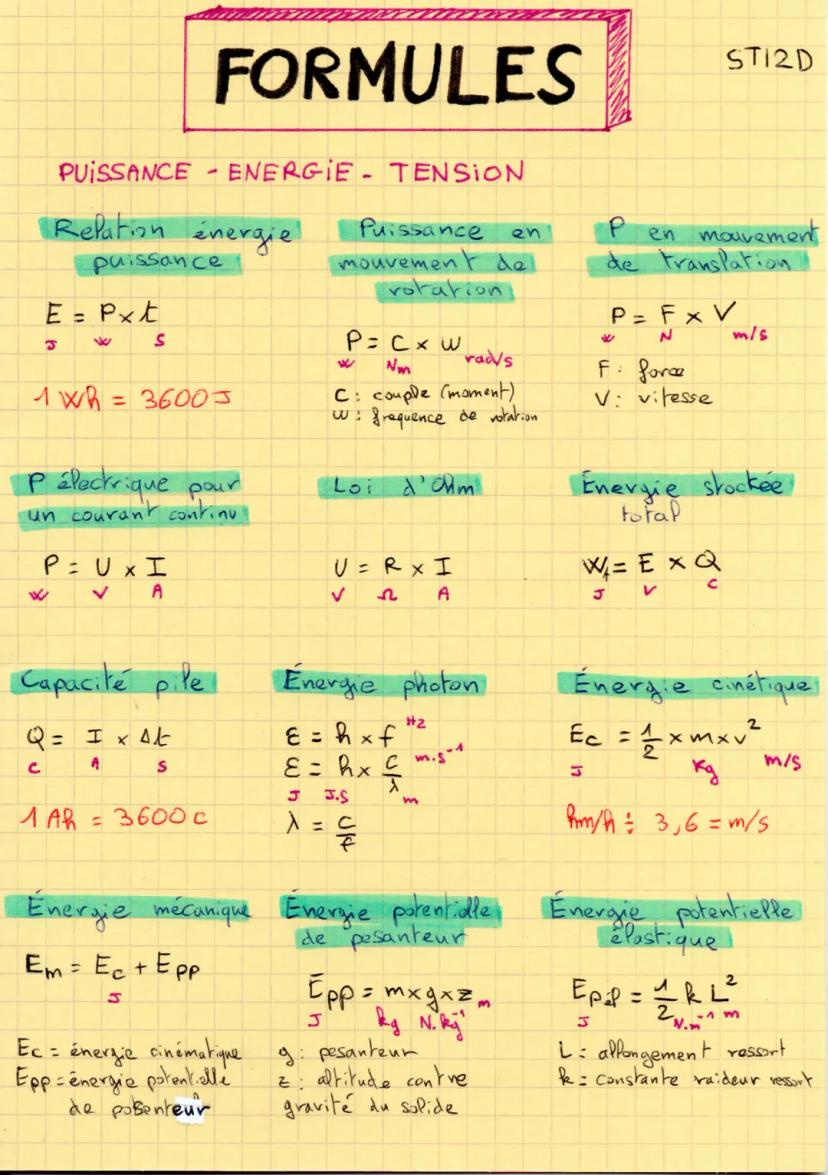 FORMULES
STI2D
PUISSANCE - ENERGIE - TENSION
Relation énergie
puissance
E = P x t
J W S
1 Wh = 3600 J
Puissance en
mouvement de
rotation
P = C x w
W Nm rad/s
C : couple (moment)
w : frequence de rotation
P en mouvement
de translation
P = F x V
W N m/s
F : force
V : vitesse
P électrique pour
un courant continu
P = U x I
W V A
Loi d'Ohm
U = R x I
V Ω A
Énergie stockée
total
Wt = E x Q
J V C
Capacité pile
Q = I x Δt
C A S
1 Ah = 3600 C
Énergie photon
Hz
E = h x f
E = h x c/λ m.s⁻¹
J J.S m
λ = c/f
Énergie cinétique
Ec = 1/2 x m x v²
J Kg m/s
km/h ÷ 3,6 = m/s
Énergie mécanique
Em = Ec + Epp
J
Ec = énergie cinématique
Epp = énergie potentielle
de pesenteur
Énergie potentielle
de pesanteur
Epp = m x g x z m
J kg N.kg⁻¹
g : pesanteur
z : altitude contre
gravité du solide
Énergie potentielle
élastique
Epél = 1/2 k L²
J N.m⁻¹ m
L = allongement ressort
k = constante raideur ressort